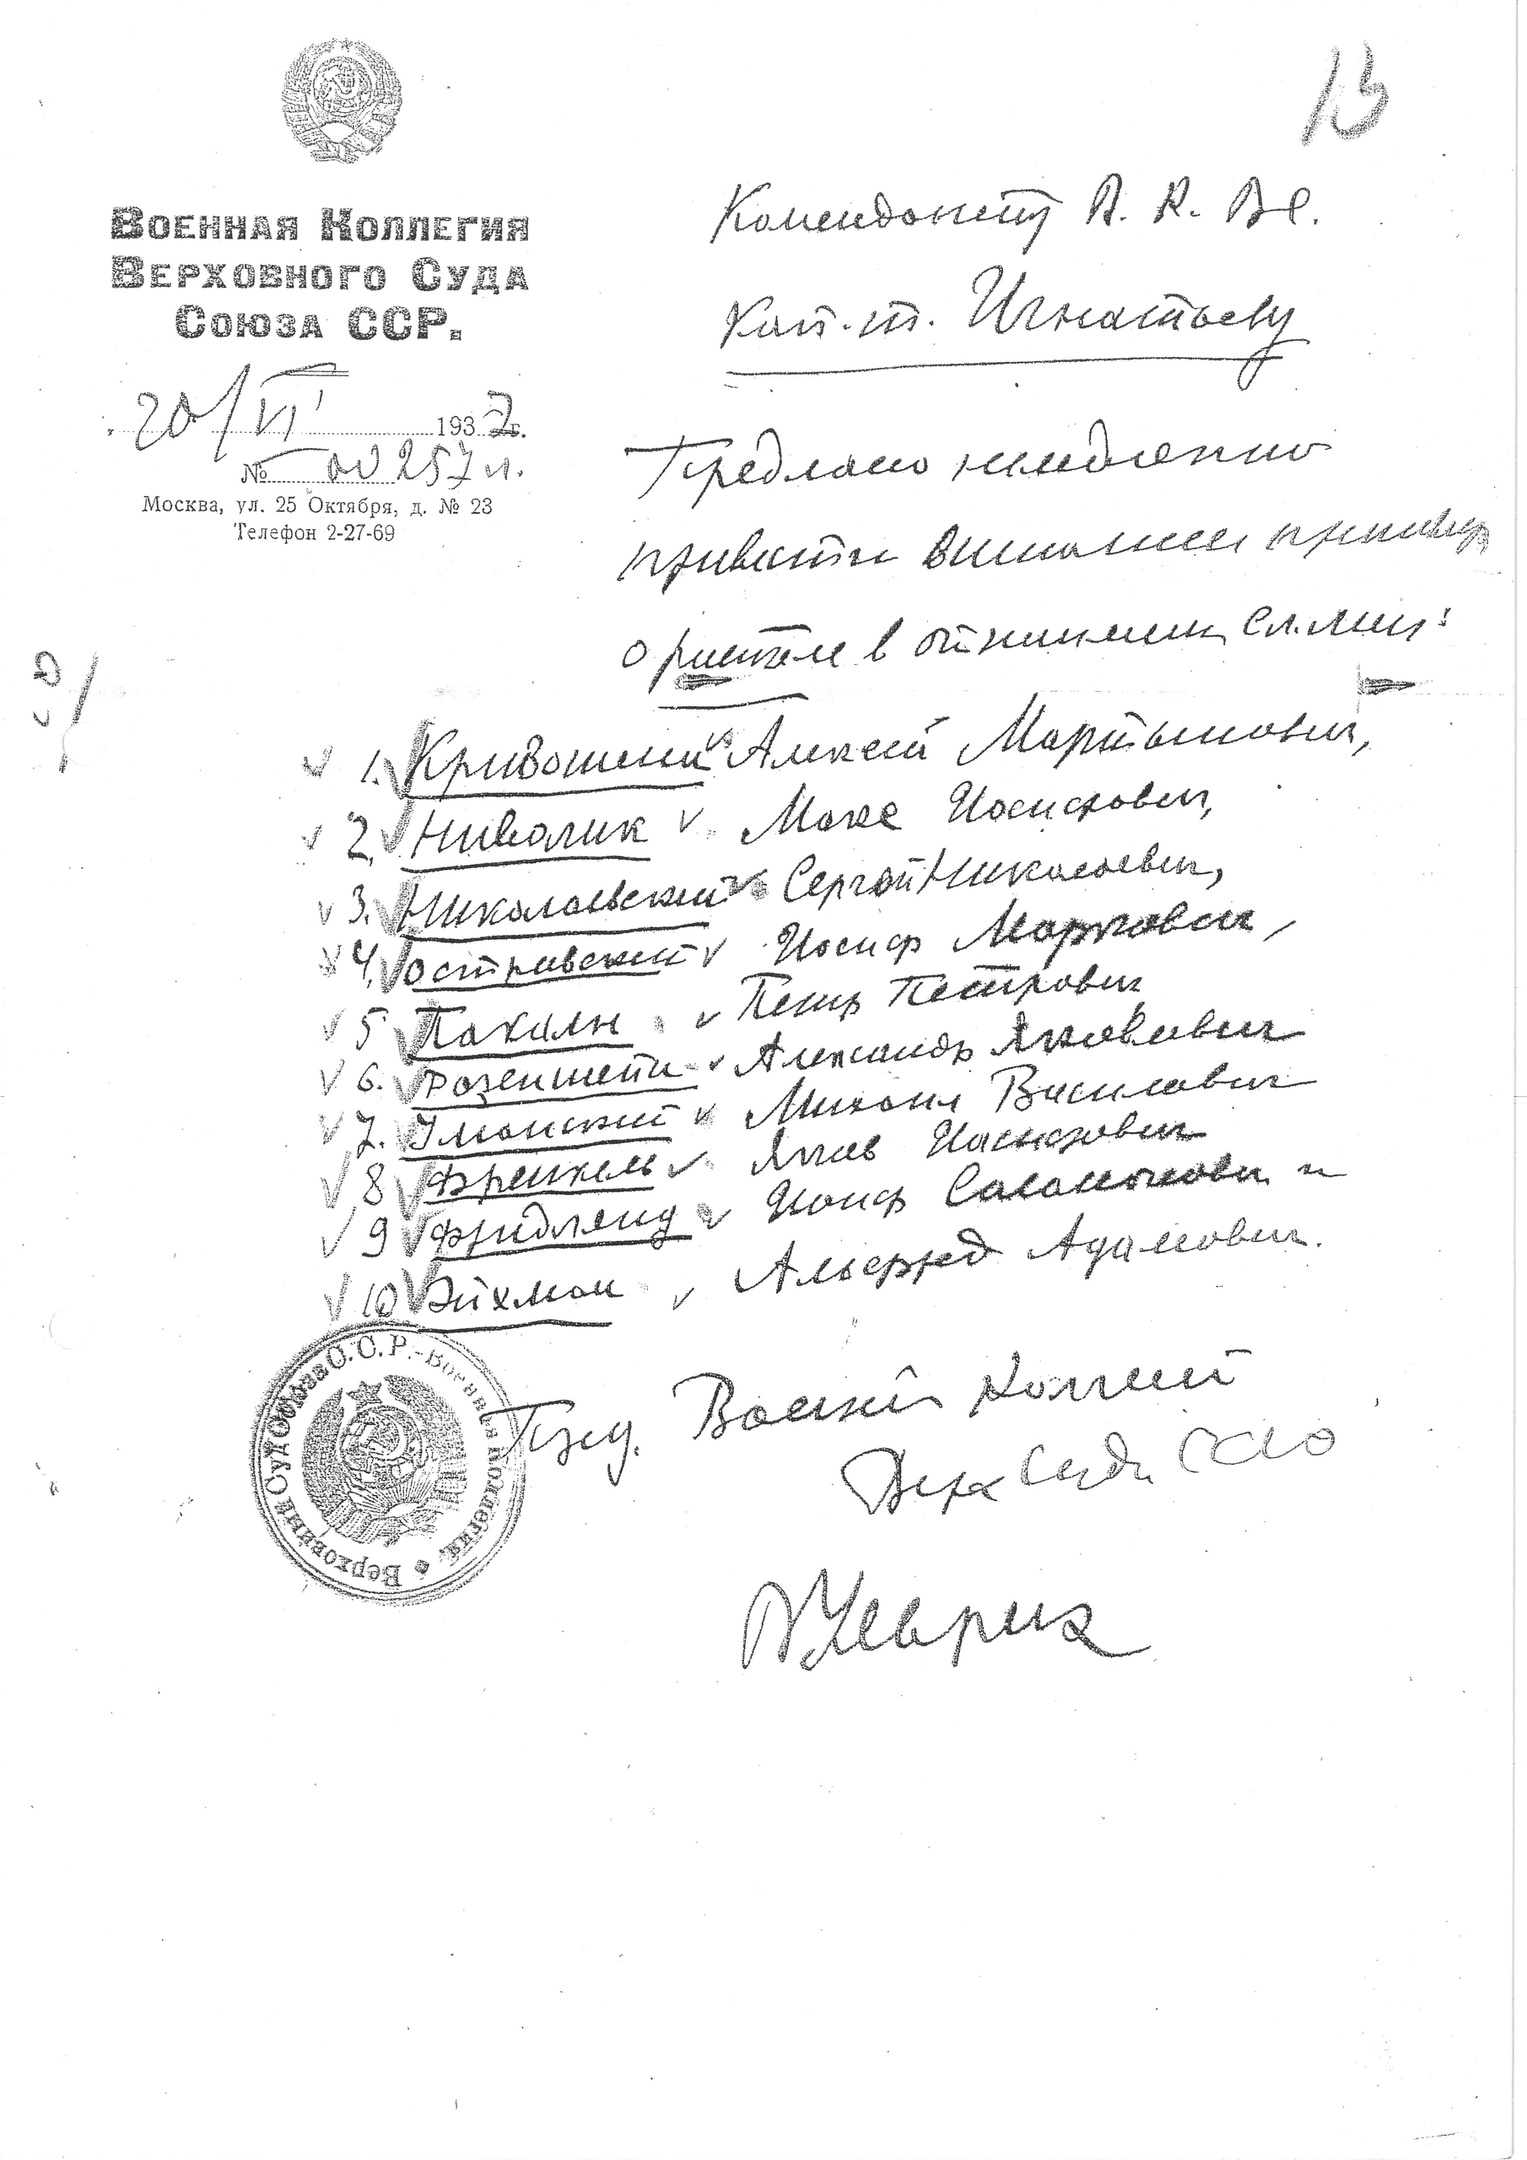 13
Военная Коллегия
Верховного Суда
Союза ССР.
20/VI 1937 г.
№ 00257
Москва, ул. 25 Октября, д. № 23
Телефон 2-27-69
Комендонту В. К. ВС.
Кап-т. Игнатьеву
Предлаю немедленно
привести в исполнение приговор
о растреле в отношении сл. лиц:
1. Кривошеин Алексей Мартынович,
2. Ниволик Макс Иосифович,
3. Николаевский Сергей Николаевич,
4. Островский Иосиф Маркович,
5 Пакалн Петр Петрович
6. Розенштейн Александр Яковлевич
7. Уманский Михаил Василевич
8 Френкель Яков Иосифович
9 Фридлянд Иосиф Саламонович и
10 Эйхман Альфред Адамович.
Пред. Военной Коллегии
Верх Суда СССР
Верховный Суд Союза С.С.Р.-Военная Коллегия.
В. Ульрих